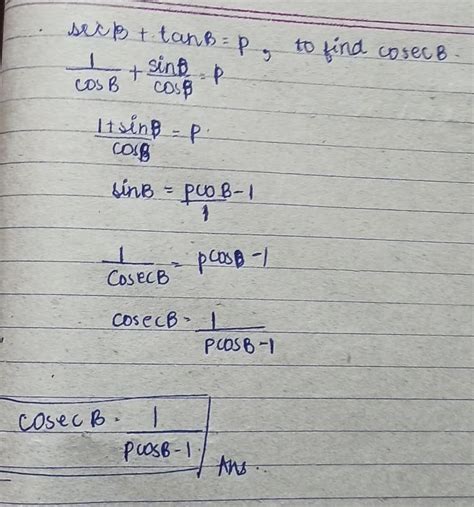 secB + tanB = P, to find cosecB.
1/cosB + sinB/cosB = P
1+sinB/cosB = P.
sinB = pcoB-1/1
1/cosecB = pcosB-1
cosecB = 1/pcosB-1
cosecB = 1/pcosB-1
Ans..